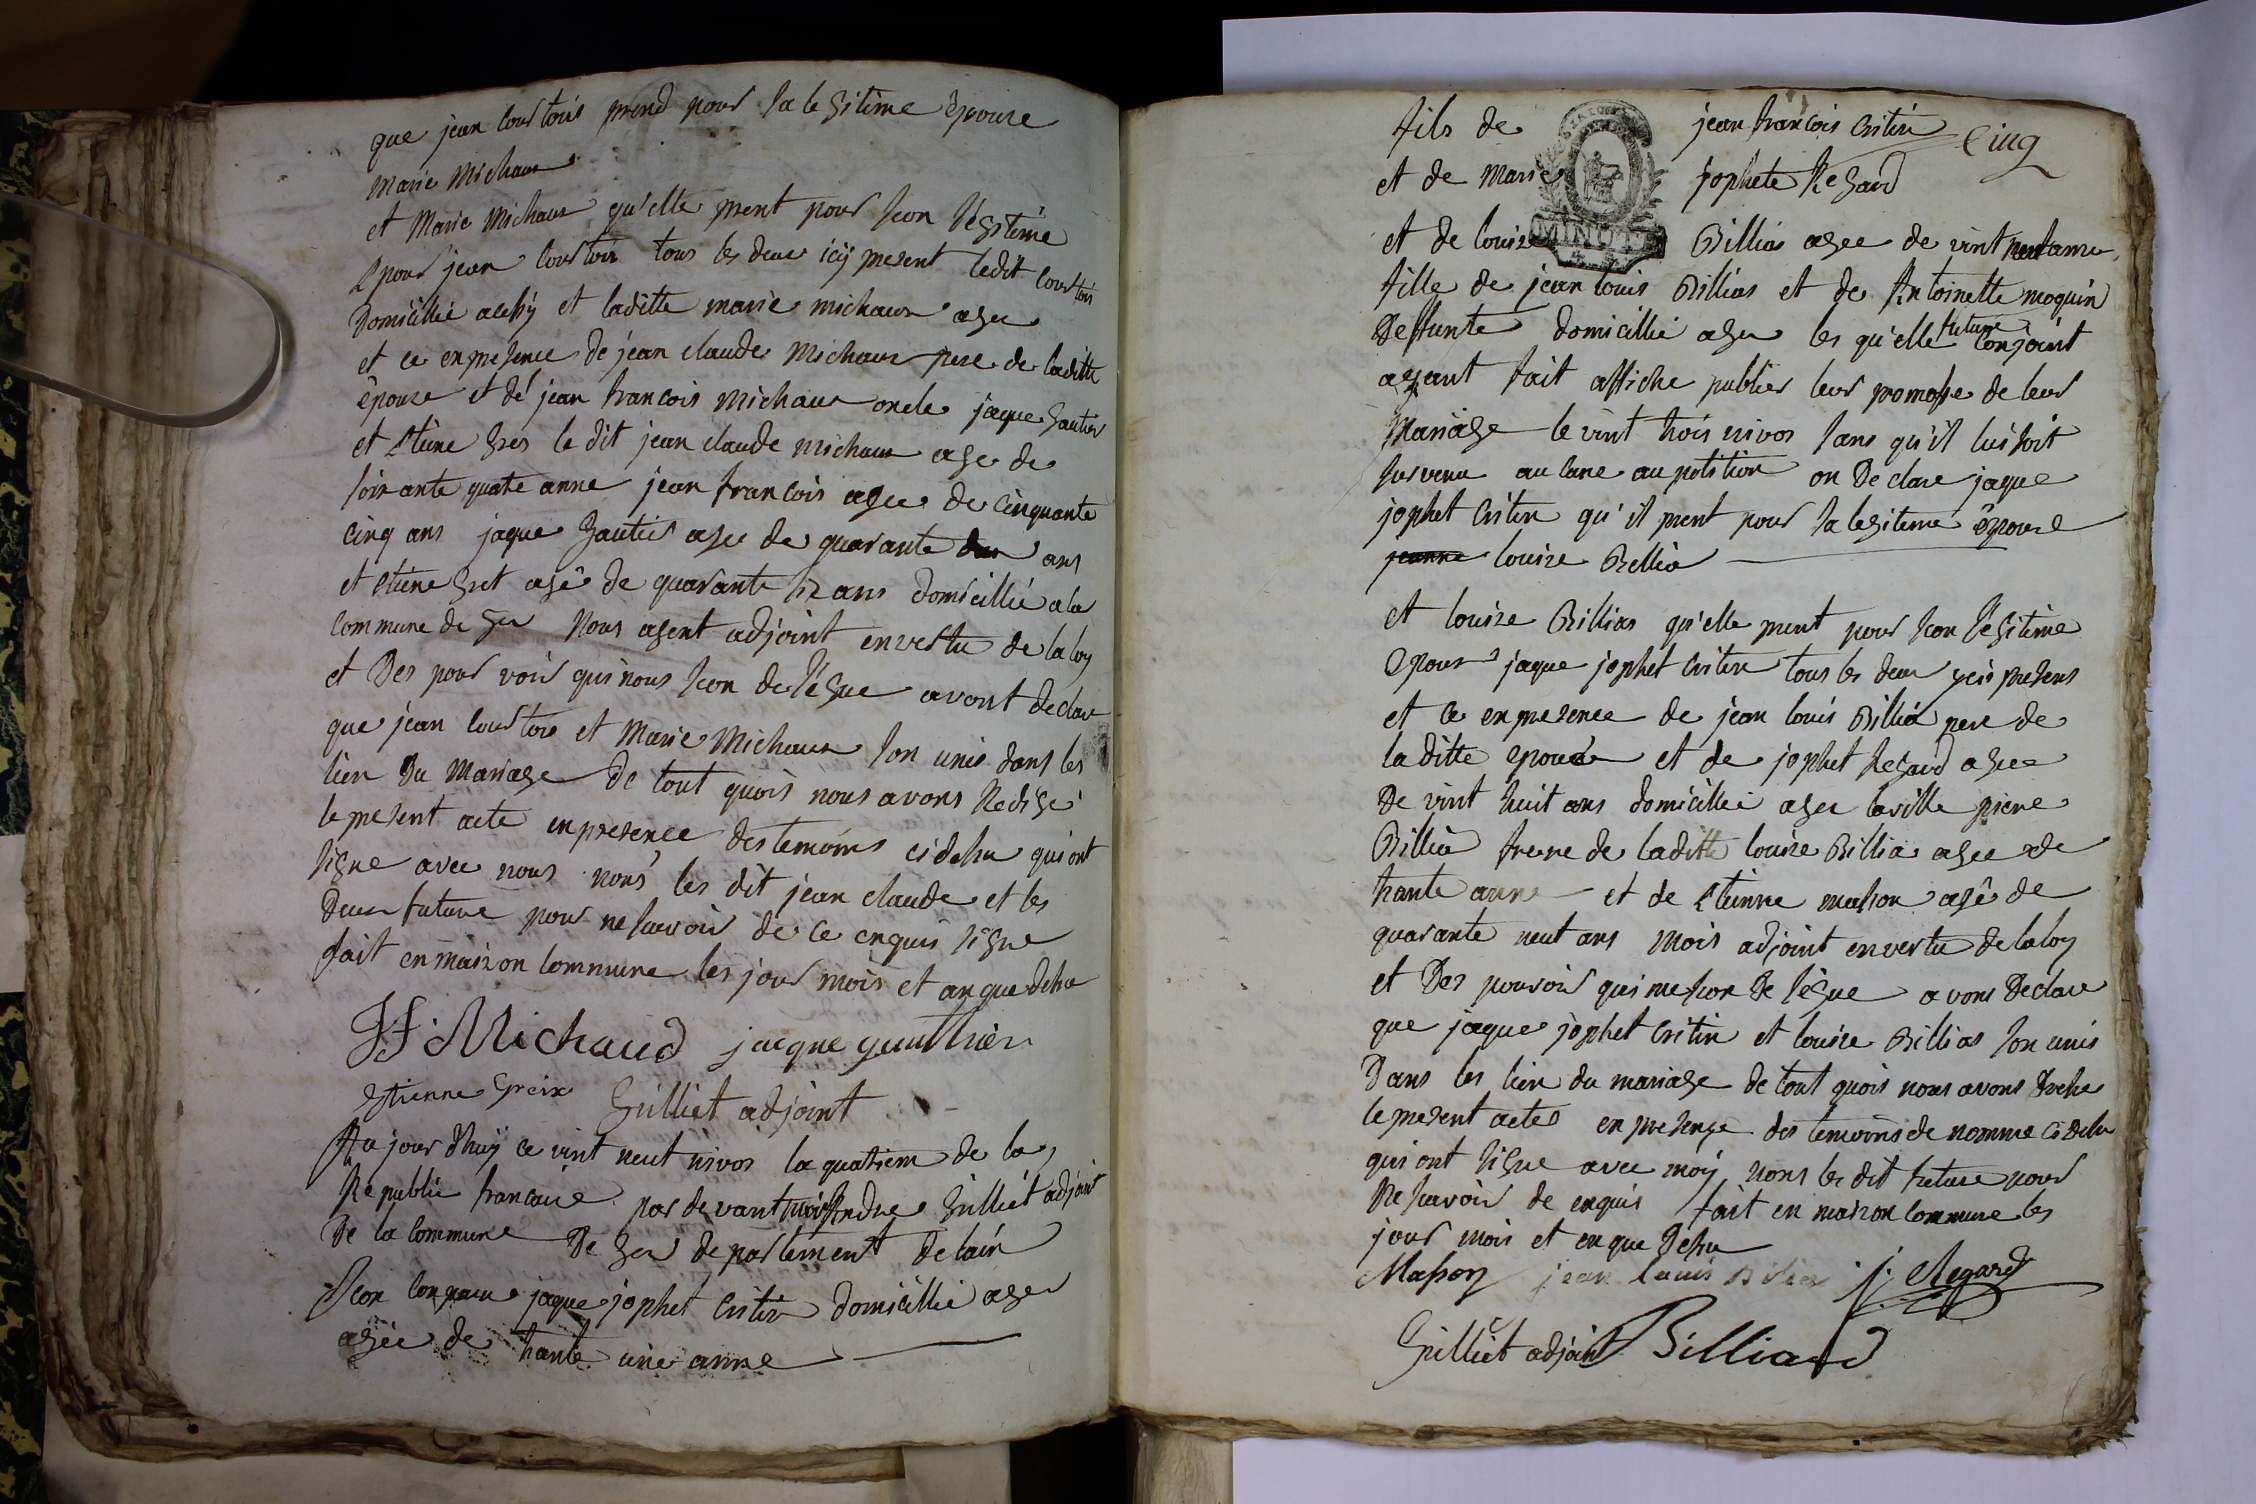 que jean Courtois prend pour sa legitime épouse
marie Michaux
et Marie michaux qu'elle prent pour son légitime
epour jean Courtois tous les deux icÿ present ledit Courtois
Domicillié a et laditte marie michaux a gex
et ce en presence de jean claude Michaux pere de laditte
épouse et dé jean francois michaux oncle jaque gautier
et Etiene gres le dit jean claude michaux age de
soix ante quatre anne jean francois agee de cinquante
cinq ans jaque gautier agee de quarante ans
et etiene gret agé de quarante six ans domicillié a la
commune de gex Nous agent adjoint en vertu de la loy
et Des pour voir qui nous son délégue avont declare
que jean Courtois et Marie Michaux son unis dans les
lien Du Mariage De tout quois nous avons Redigé
le present acte en presence des temoins ci desu qui ont
signe avec nous nons les dit jean claude et les
Deux future pour ne savoir de ce enquis signe
fait en maison commune les jour mois et an que desu
JF Michaud jacque gauthier
Etienne greix
Gilliet adjoint
Au jour d'huÿ ce vint neuf nivos la quatriem de la
Republic francaise par devant mois Andre Gilliet adjoint
De la commune De gex departement de lain
son conparu jaque jophet Critin domicillié a gex
agée de trante une anne
fils de jean francois Critin Cinq
et de Marie jophete Regard
MINUTE
et de louise Billias agee de vint neuf anne
fille de jean louis Billias et de Antoinette moquin
Deffunte domicillié a gex les qu'elle future conjoint
ayant fait affiche publier leur promesse de leur
Mariage le vint trois nivos sans qu'il lui soit
survenu au cune au position on Declare jaque
jophet Critin qu'il prent pour sa legiteme épouse
jeanne louise Billia
et louise Billias qu'elle prent pour son légitime
epour jaque jophet Critin tous les deux ycis presens
et ce en presence de jean louis Billia pere de
la ditte epouse et de jophet Regard agee
De vint huit ans domicillié a gex la ville piere
Billia frere de laditte louise Billia agee de
trante anne et de Etienne masson agé de
quarante neuf ans Mois adjoint en vertu de la loy
et Des pouvoir qui me son Délégue avons Declare
que jaque jophet Critin et louise Billias son unis
Dans les lien du mariage de tout quois nous avons
le present acte en presence des temoins de nomme ci desu
qui ont signe avec moÿ nons les dit future pour
Ne savoir de enquis fait en maison commune les
jour mois et en que Desu
Masson jean louis Billia j: Regard
Gilliet adjoint Billiard